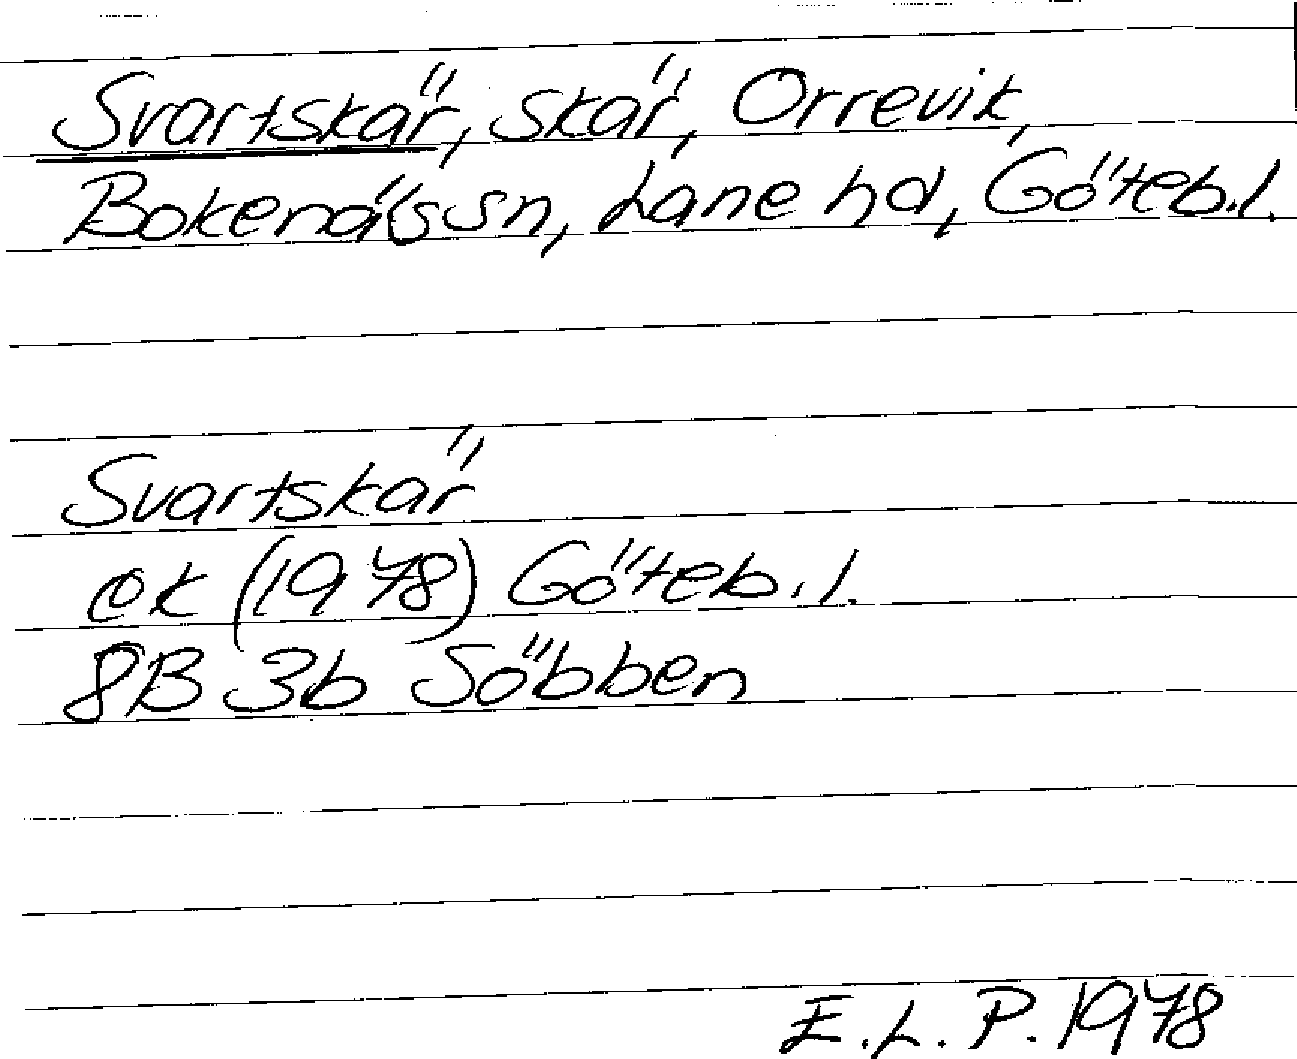 Svartskär, skär, Orrevik,
Bokenäs sn, Lane hd, Göteb.l.
Svartskär
ek (1978) Göteb.l.
8B 3b Söbben
E.L.P. 1978